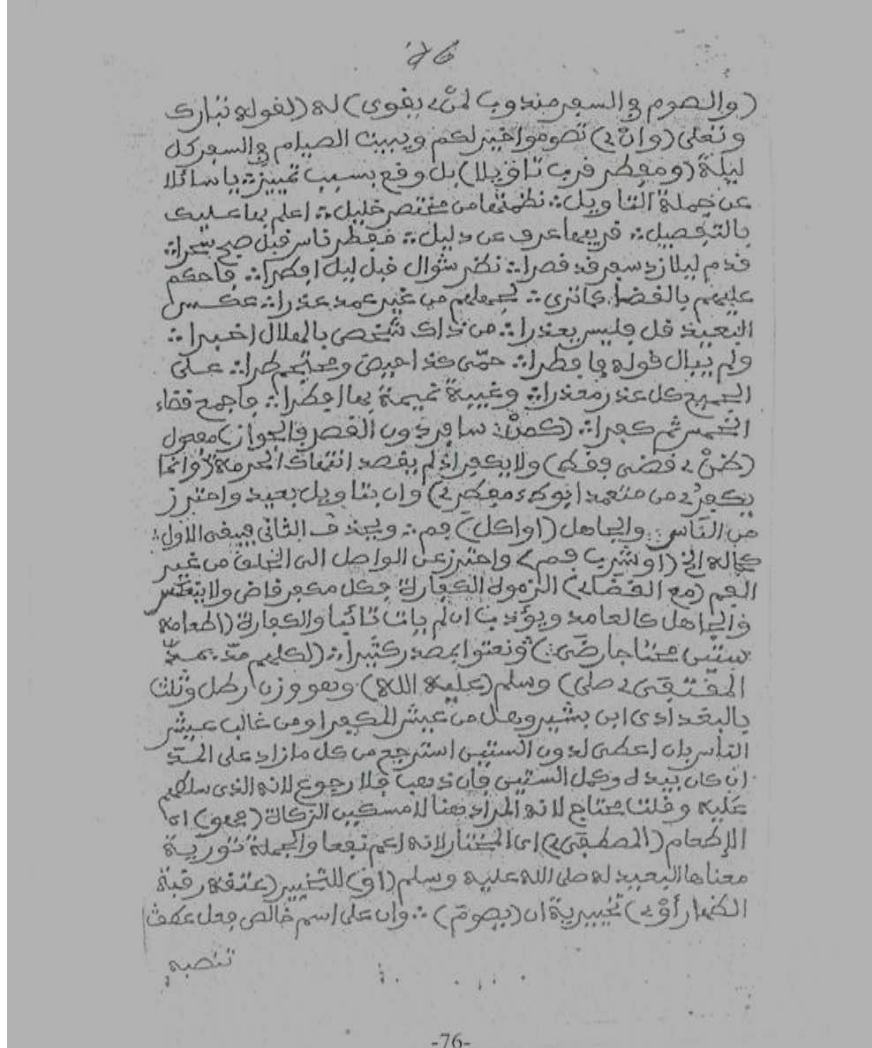 76
(والصوم في السفر مندوب لمن يقوى) له (لقوله تبارك
وتعلى (وان) تصوموا خير لكم ويبيت الصيام في السفر كل
ليلة (ومفطر قرب تاويلا) بل وقع بسبب تمييز ؞ يا سائلا
عن جملة التاويل ؞ نظمتها من مختصر خليل ؞ اعلم بها عليك
بالتفصيل ؞ قريبها عرف عن دليل ؞ فمفطر ناس قبل صبح
قدم ليلا زد سفر قد قصرا ؞ نظر شوال قبل ليل افطرا ؞ فاحكم
عليهم بالقضا كما ترى ؞ لجهلهم من غير عمد عذرا ؞ عكس
البعيد قل فليس يعذرا ؞ من ذاك شخص بالهلال اخبرا ؞
ولم يبال قوله فافطرا ؞ حمى كذا حيض ومحتجم طرا ؞ على
الجميع كل عذر معذرا ؞ وغيبة نميمة بها افطرا ؞ فاجمع قضاء
الخمس ثم كفرا ؞ (كمن) سافر دون القصر فالجواز مفعول
(ظن) قضى فقط) ولا يكفر اذ لم يقصد انتهاك الحرمة (وانما
يكفر من متعمد) وان بتاويل بعيد واحترز
من الناس والجاهل (او اكل) فم ؞ ويحذف الثاني فيبقى الاول ؞
كحاله الخ (او شرب فم) واحترز عن الواصل الى الحلق من غير
الفم (مع القضا) لزموه الكفارة فكل مكفر قاض ولا ينعكس
والجاهل كالعامد ويؤدب ان لم يات تائبا والكفارة (اطعامه
ستين) ونعتوا بمصدر كثيرا ؞ (لكلهم مد بمد
المقتفى) صلى) وسلم (عليه الله) وهو وزن رطل وثلث
بالبغدادي ابن بشير وهل من عيش المكفر او من غالب عيش
الناس بان اعطى لدون الستين استرجع من كل ما زاد على المد
ان كان بيده وكمل الستين فان ذهب فلا رجوع لانه الذي سلطهم
عليه وقلنا محتاج لانه المراد هنا لا مسكين الزكاة (فهو) اي
الاطعام (المصطفى) اي المختار لانه اعم نفعا والجملة تورية
معناها البعيد له صلى الله عليه وسلم (او) للتخيير (عتقه رقبة
الظهار أو) تخييرية ان (يصوم) ؞ وان على اسم خالص فعل عطف
تنصبه
-76-